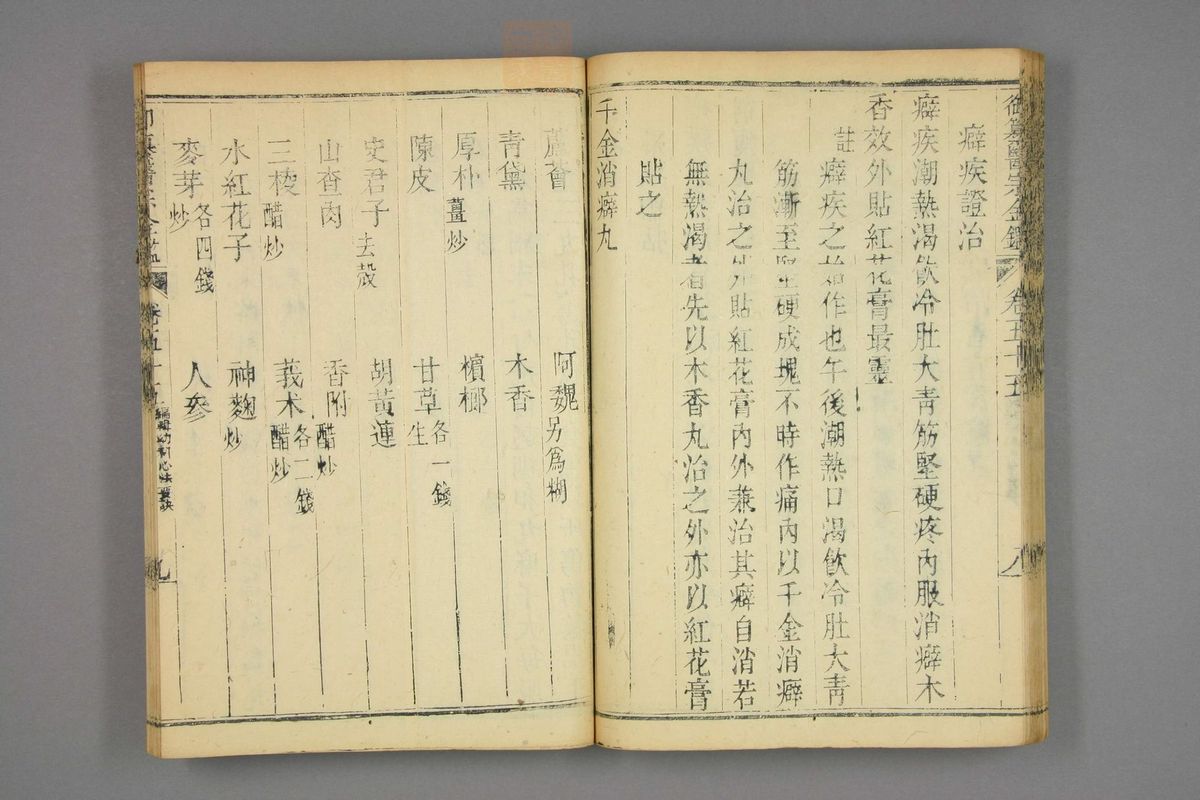 御纂醫宗金鑑 卷五十五 八
癖疾證治
癖疾潮熱渴飲冷肚大青筋堅硬疼內服消癖木
香效外貼紅花膏最靈
註癖疾之始作也午後潮熱口渴飲冷肚大青
筋漸至堅硬成塊不時作痛內以千金消癖
丸治之外貼紅花膏內外兼治其癖自消若
無熱渴者先以木香丸治之外亦以紅花膏
貼之
千金消癖丸
蘆薈 阿魏另爲糊
青黛 木香
厚朴薑炒 檳榔
陳皮 甘草各一錢生
史君子去殼 胡黃連
山查肉 香附醋炒
三稜醋炒 莪术各二錢醋炒
水紅花子 神麯炒
麥芽各四錢炒 人參
卷五十五 編輯幼科心法要訣 九